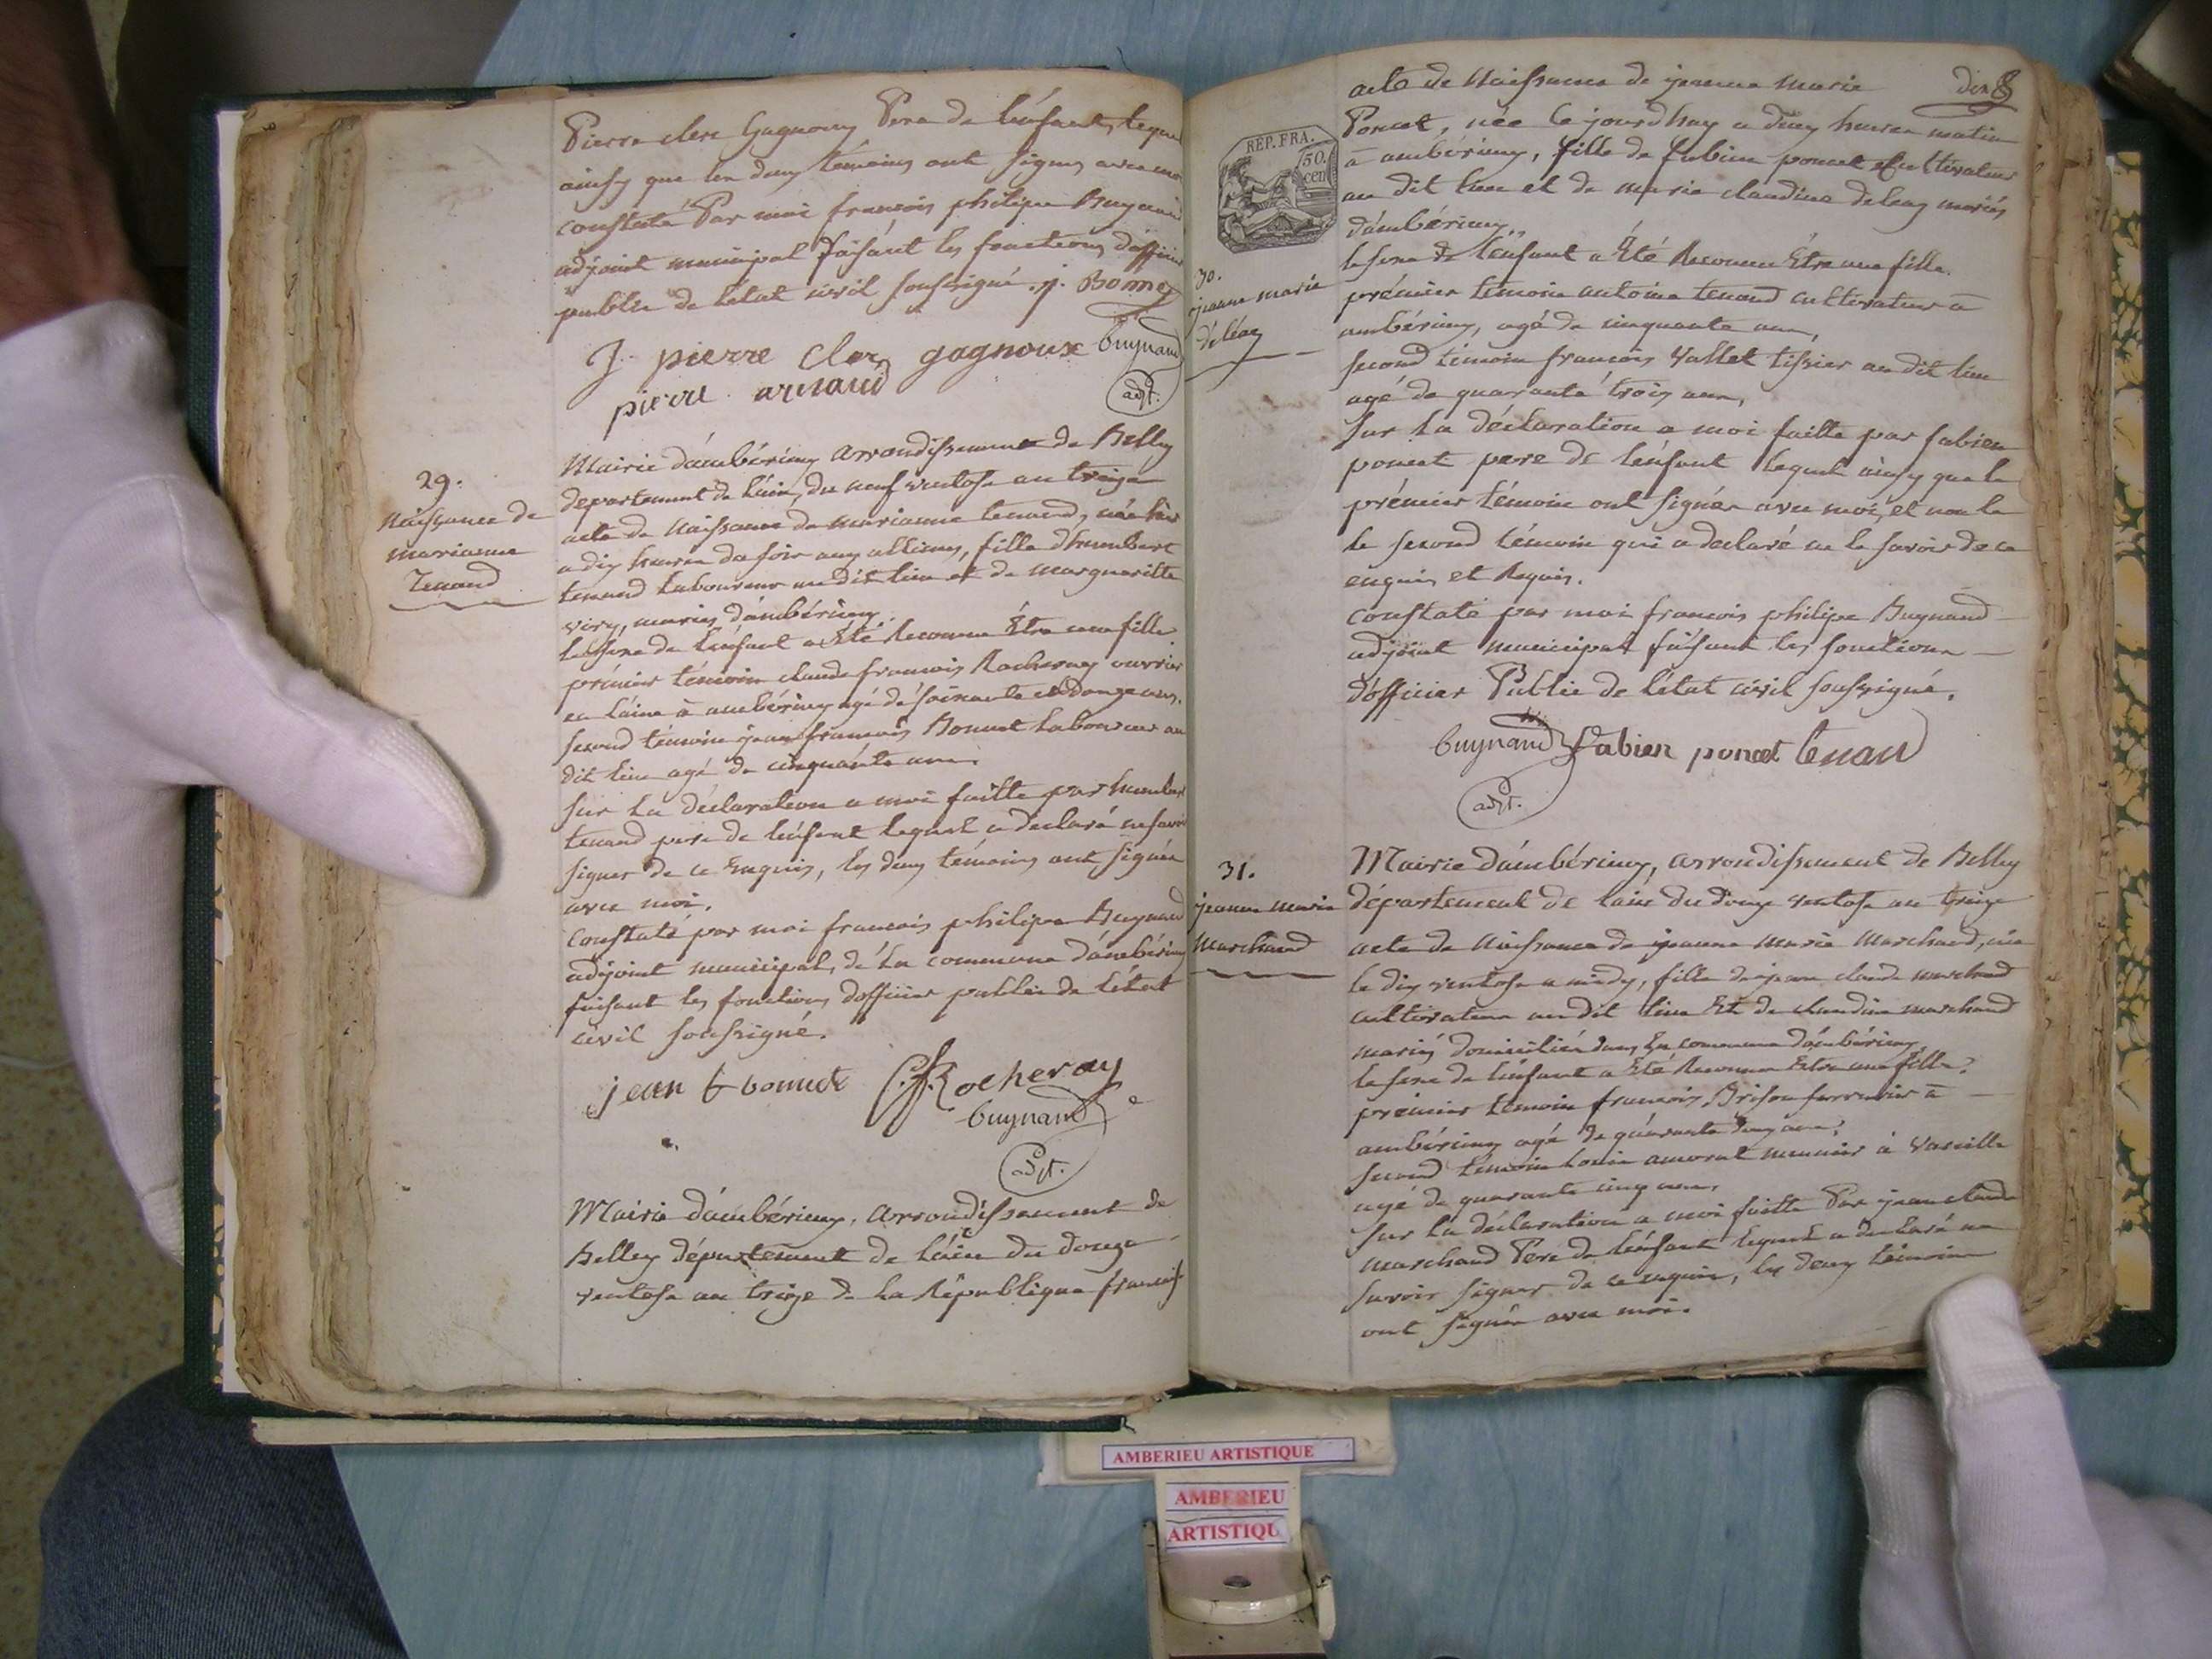 Pierre clerc Gagnoux Pere de lénfant, lequel
ainsy que les deux témoins ont signes avec moi
constaté Par moi francois philipe Buynand
adjoint municipal faisant les fonctions dofficier
publie de létat civil soussigné. j. Bonnet
J. pierre clerc gagnoux buynand
pierre arnaud
adjt.
29.
Naissance de
marianne
Tenand
Mairie dámbérieux arrondissement de Belley
departement de láin, du neuf ventose an treize
acte de naissance de marianne tenand, née hier
a dix heures du soir aux allimes, fille dhumbert
tenand laboureur au dit lieu et de margueritte
viry, mariés dámbérieux.
le sexe de lénfant a Été Reconnu Étre une fille.
prémier témoin claude francois Rocheray ouvrier
en láine à ambérieux agé de soixante et douze ans.
second témoin jean francois Bonnet laboureur au
dit lieu agé de cinquante ans.
sur la déclaration a moi faitte par humbert
tenand pere de lénfant lequel a declaré ne savoir
signer de ce Enquis, les deux témoins ont signés
avec moi.
constaté par moi francois philipe Buynand
adjoint municipal, de la commune dámbérieux
faisant les fonctions dofficier public de létat
civil soussigné.
jean f bonnet C. f. Rocheray
buynand
adjt.
Mairie dámbérieux, arrondissement de
Belley département de láin du douze
ventose an treize de la République francais
acte de Naissance de jeanne marie
dix 8
REP. FRA.
50.
cen
Poncet, née ce jourdhuy a deux heures matin
à ambérieux, fille de fabien poncet cultivateur
au dit lieu et de marie claudine deleaz mariés
dámbérieux.
30.
jeanne marie
déléaz
le sexe de lénfant a Été Reconnu Étre une fille.
prémier témoin antoine tenand cultivateur à
ambérieux, agé de cinquante ans,
second témoin francois vallet tissier au dit lieu
agé de quarante trois ans,
sur la déclaration a moi faitte par fabien
poncet pere de lénfant lequel ainsy que le
prémier témoin ont signés avec moi, et non le
le second témoin qui a declaré ne le savoir de ce
enquis et Requis.
constaté par moi francois philipe Buynand
adjoint municipal faisant les fonctions
d'officier Public de létat civil soussigné.
buynand fabien poncet tenan
adjt.
31.
jeanne marie
Marchand
Mairie dámbérieux, arrondissement de Belley
département de lain du douze ventose an treize
acte de Naissance de jeanne marie Marchand, née
le dix ventose a midy, fille de jean claude marchand
cultivateur au dit lieu Et de claudine marchand
mariés domiciliés dans la commune dámbérieux
le sexe de lénfant a Été Reconnu Etre une fille.
prémier témoin francois Brison serrurier à
ambérieux agé de quarante deux ans,
second témoin Louis amorat meunier à vareille
agé de quarante cinq ans,
sur la déclaration a moi faitte Par jean claude
marchand Pere de lénfant lequel a declaré ne
savoir signer de ce enquis, les deux témoins
ont signés avec moi.
AMBERIEU ARTISTIQUE
AMBERIEU
ARTISTIQU